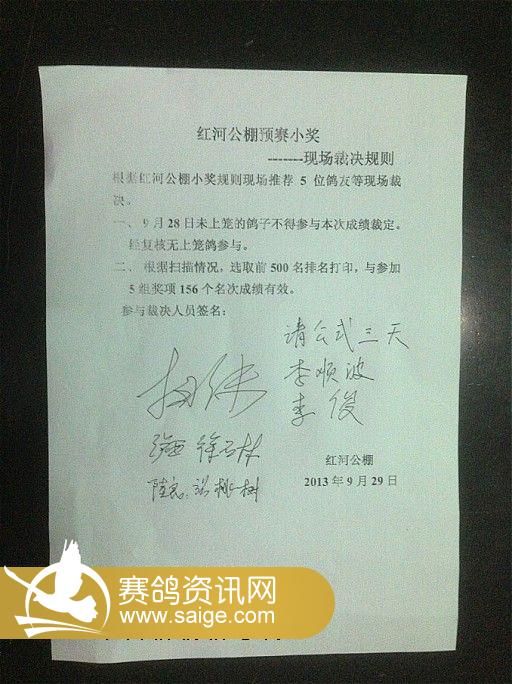 红河公棚预赛小奖
-------现场裁决规则
根据红河公棚小奖规则现场推荐 5 位鸽友等现场裁
决。
一、 9 月 28 日未上笼的鸽子不得参与本次成绩裁定。
经复核无上笼鸽参与。
二、 根据扫描情况，选取前 500 名排名打印，与参加
5 组奖项 156 个名次成绩有效。
参与裁决人员签名：
请公式三天
李顺波
李俊
徐石林
桃树
红河公棚
2013 年 9 月 29 日
赛鸽资讯网
www.saige.com